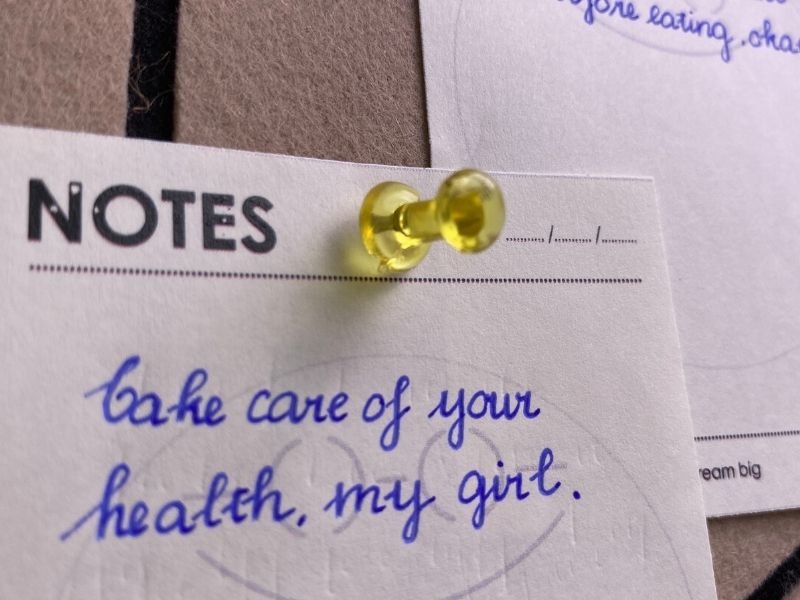 eating, okay
NOTES
Take care of your
health, my girl.
ream big